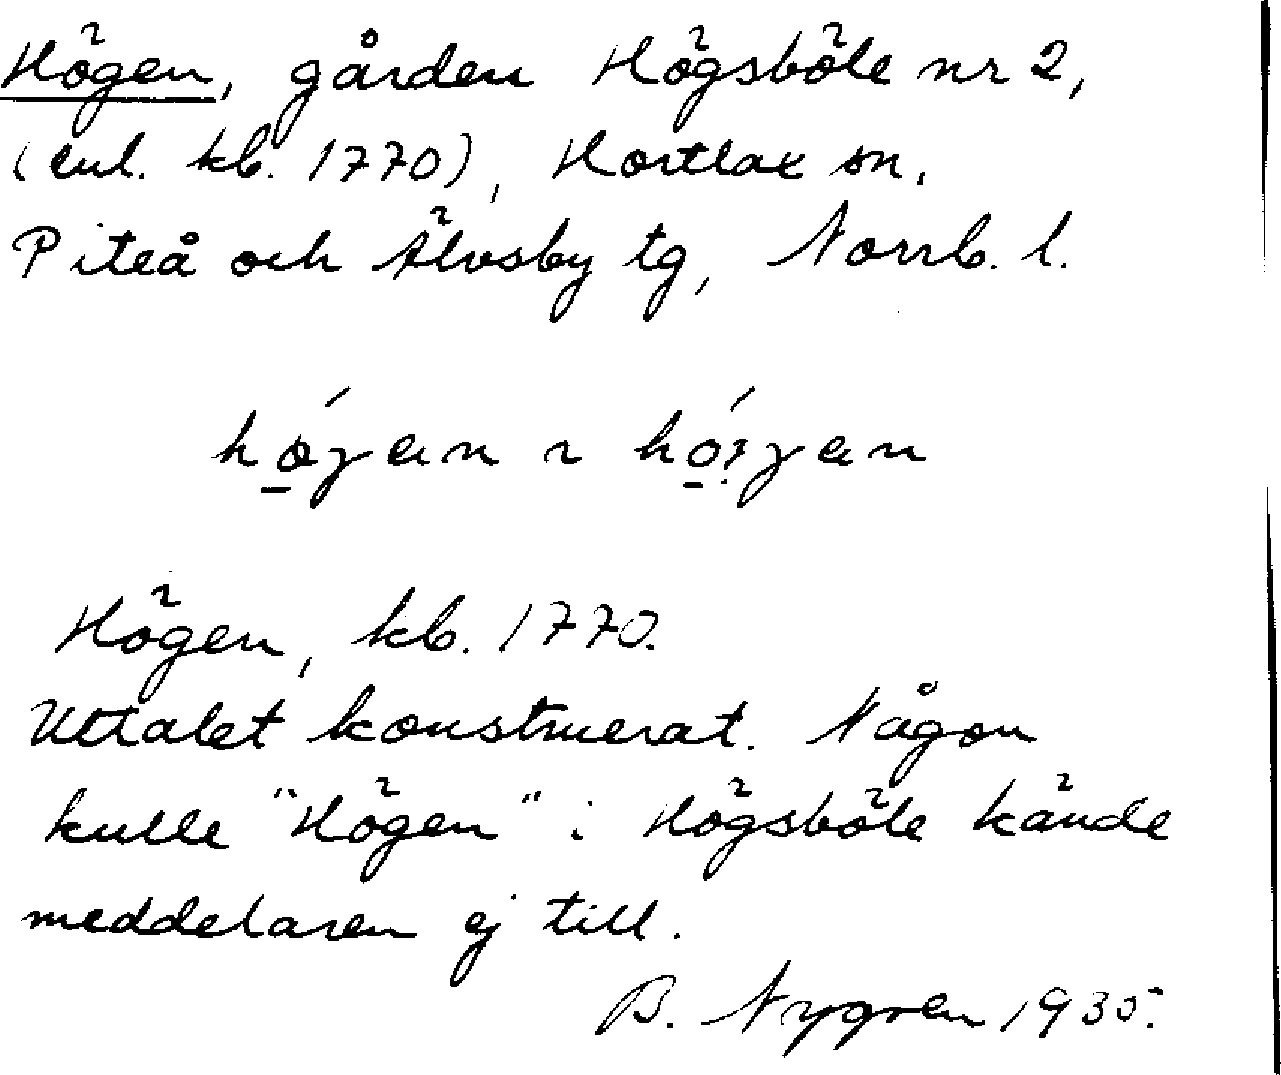 Högen, gården Högsböle nr 2,
(enl. kb. 1770), Hortlax sn,
Piteå och Älvsby tg, Norrb. l.
Högen, kb. 1770.
Uttalet konstruerat. Någon
kulle "Högen" i Högsböle kände
meddelaren ej till.
B. Nygren 1935.